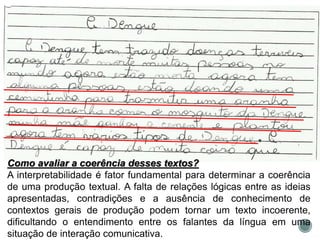 A Dengue
A Dengue, tem trazido doenças terriveis
capaz até de morte muitas pessoas no
mundo agora estão morta agora tem
alguma pessoas estão doando uma
cementinha para trasmitir uma aranha
para a aranha comer o mosquito da Dengue
minha mãe ganhou a cement e plantou
agora tem varios tipos de Dengue. A
Dengue é capaz de muita coisa que
Como avaliar a coerência desses textos?
A interpretabilidade é fator fundamental para determinar a coerência
de uma produção textual. A falta de relações lógicas entre as ideias
apresentadas, contradições e a ausência de conhecimento de
contextos gerais de produção podem tornar um texto incoerente,
dificultando o entendimento entre os falantes da língua em uma
situação de interação comunicativa.